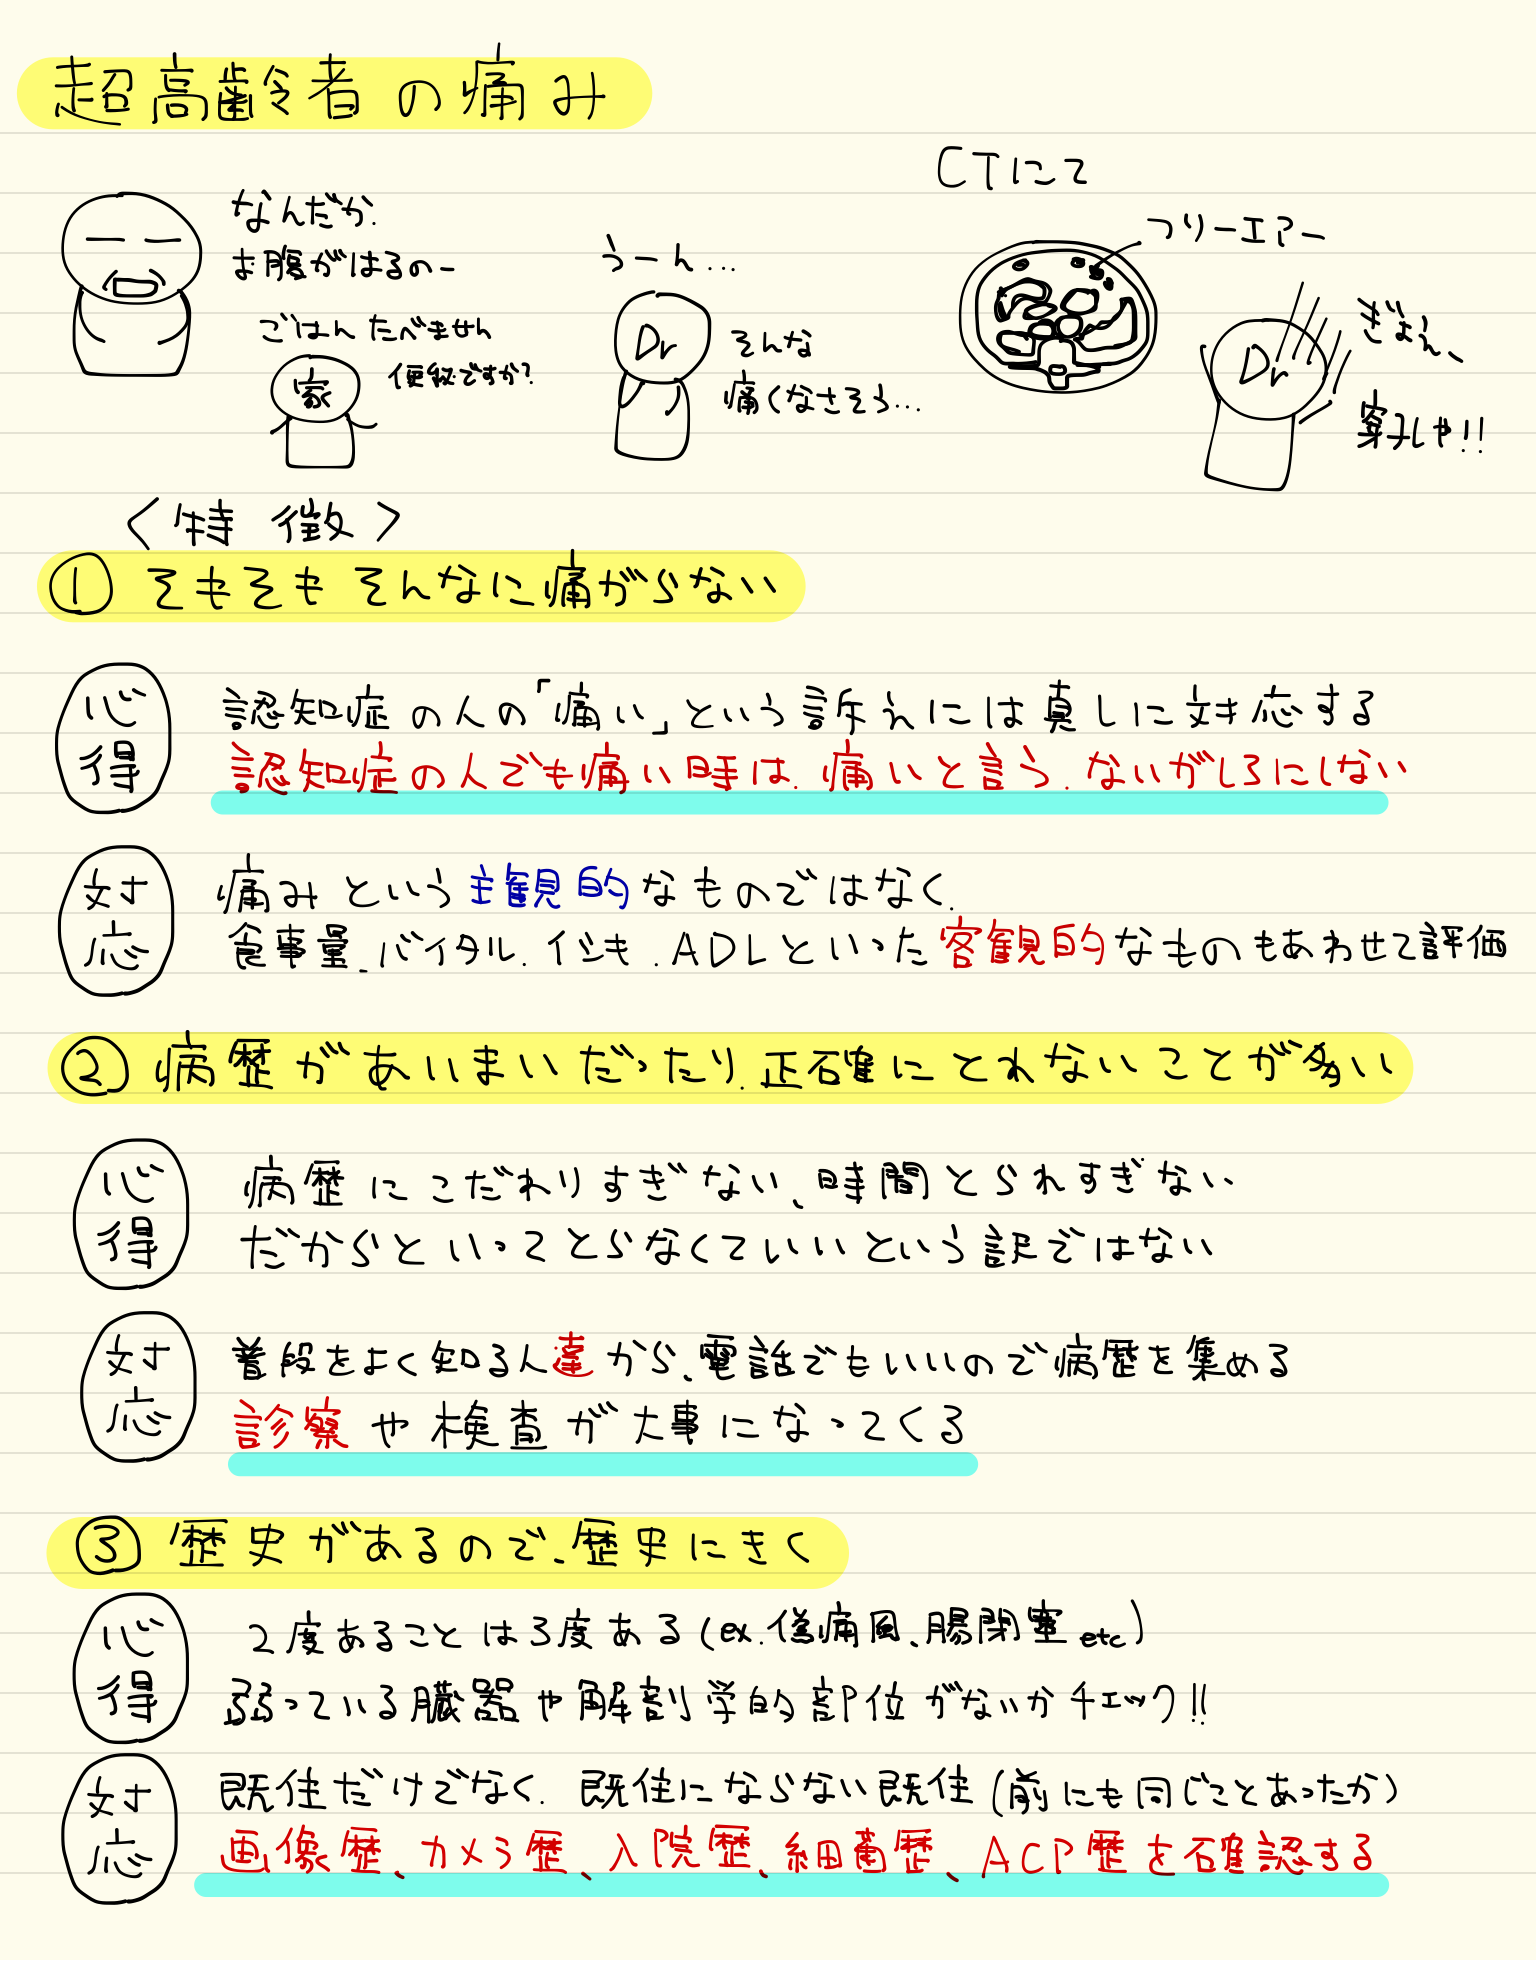 超高齢者の痛み
なんだか、
お腹がはるのー
ごはん たべません
便秘ですか?
家
うーん…
Dr
そんな
痛くなさそう…
CTにて
フリーエアー
Dr
ぎょえ、
穿孔しや!!
〈特徴〉
① そもそも そんなに痛がらない
心得
認知症の人の「痛い」という訴えには真しに対応する
認知症の人でも痛い時は、痛いと言う、ないがしろにしない
対応
痛みという主観的なものではなく、
食事量、バイタル、イシキ、ADLといった客観的なものもあわせて評価
② 病歴があいまいだったり、正確にとれないことが多い
心得
病歴にこだわりすぎない、時間とられすぎない
だからといってとらなくていいという訳ではない
対応
普段をよく知る人達から、電話でもいいので病歴を集める
診察や検査が大事になってくる
③ 歴史があるので、歴史にきく
心得
2度あることは3度ある(ex.偽痛風、腸閉塞etc)
弱っている臓器や解剖学的部位がないかチェック!!
対応
既住だけでなく、既住にならない既住(前にも同じことあったか)
画像歴、カメラ歴、入院歴、細菌歴、ACP歴を確認する